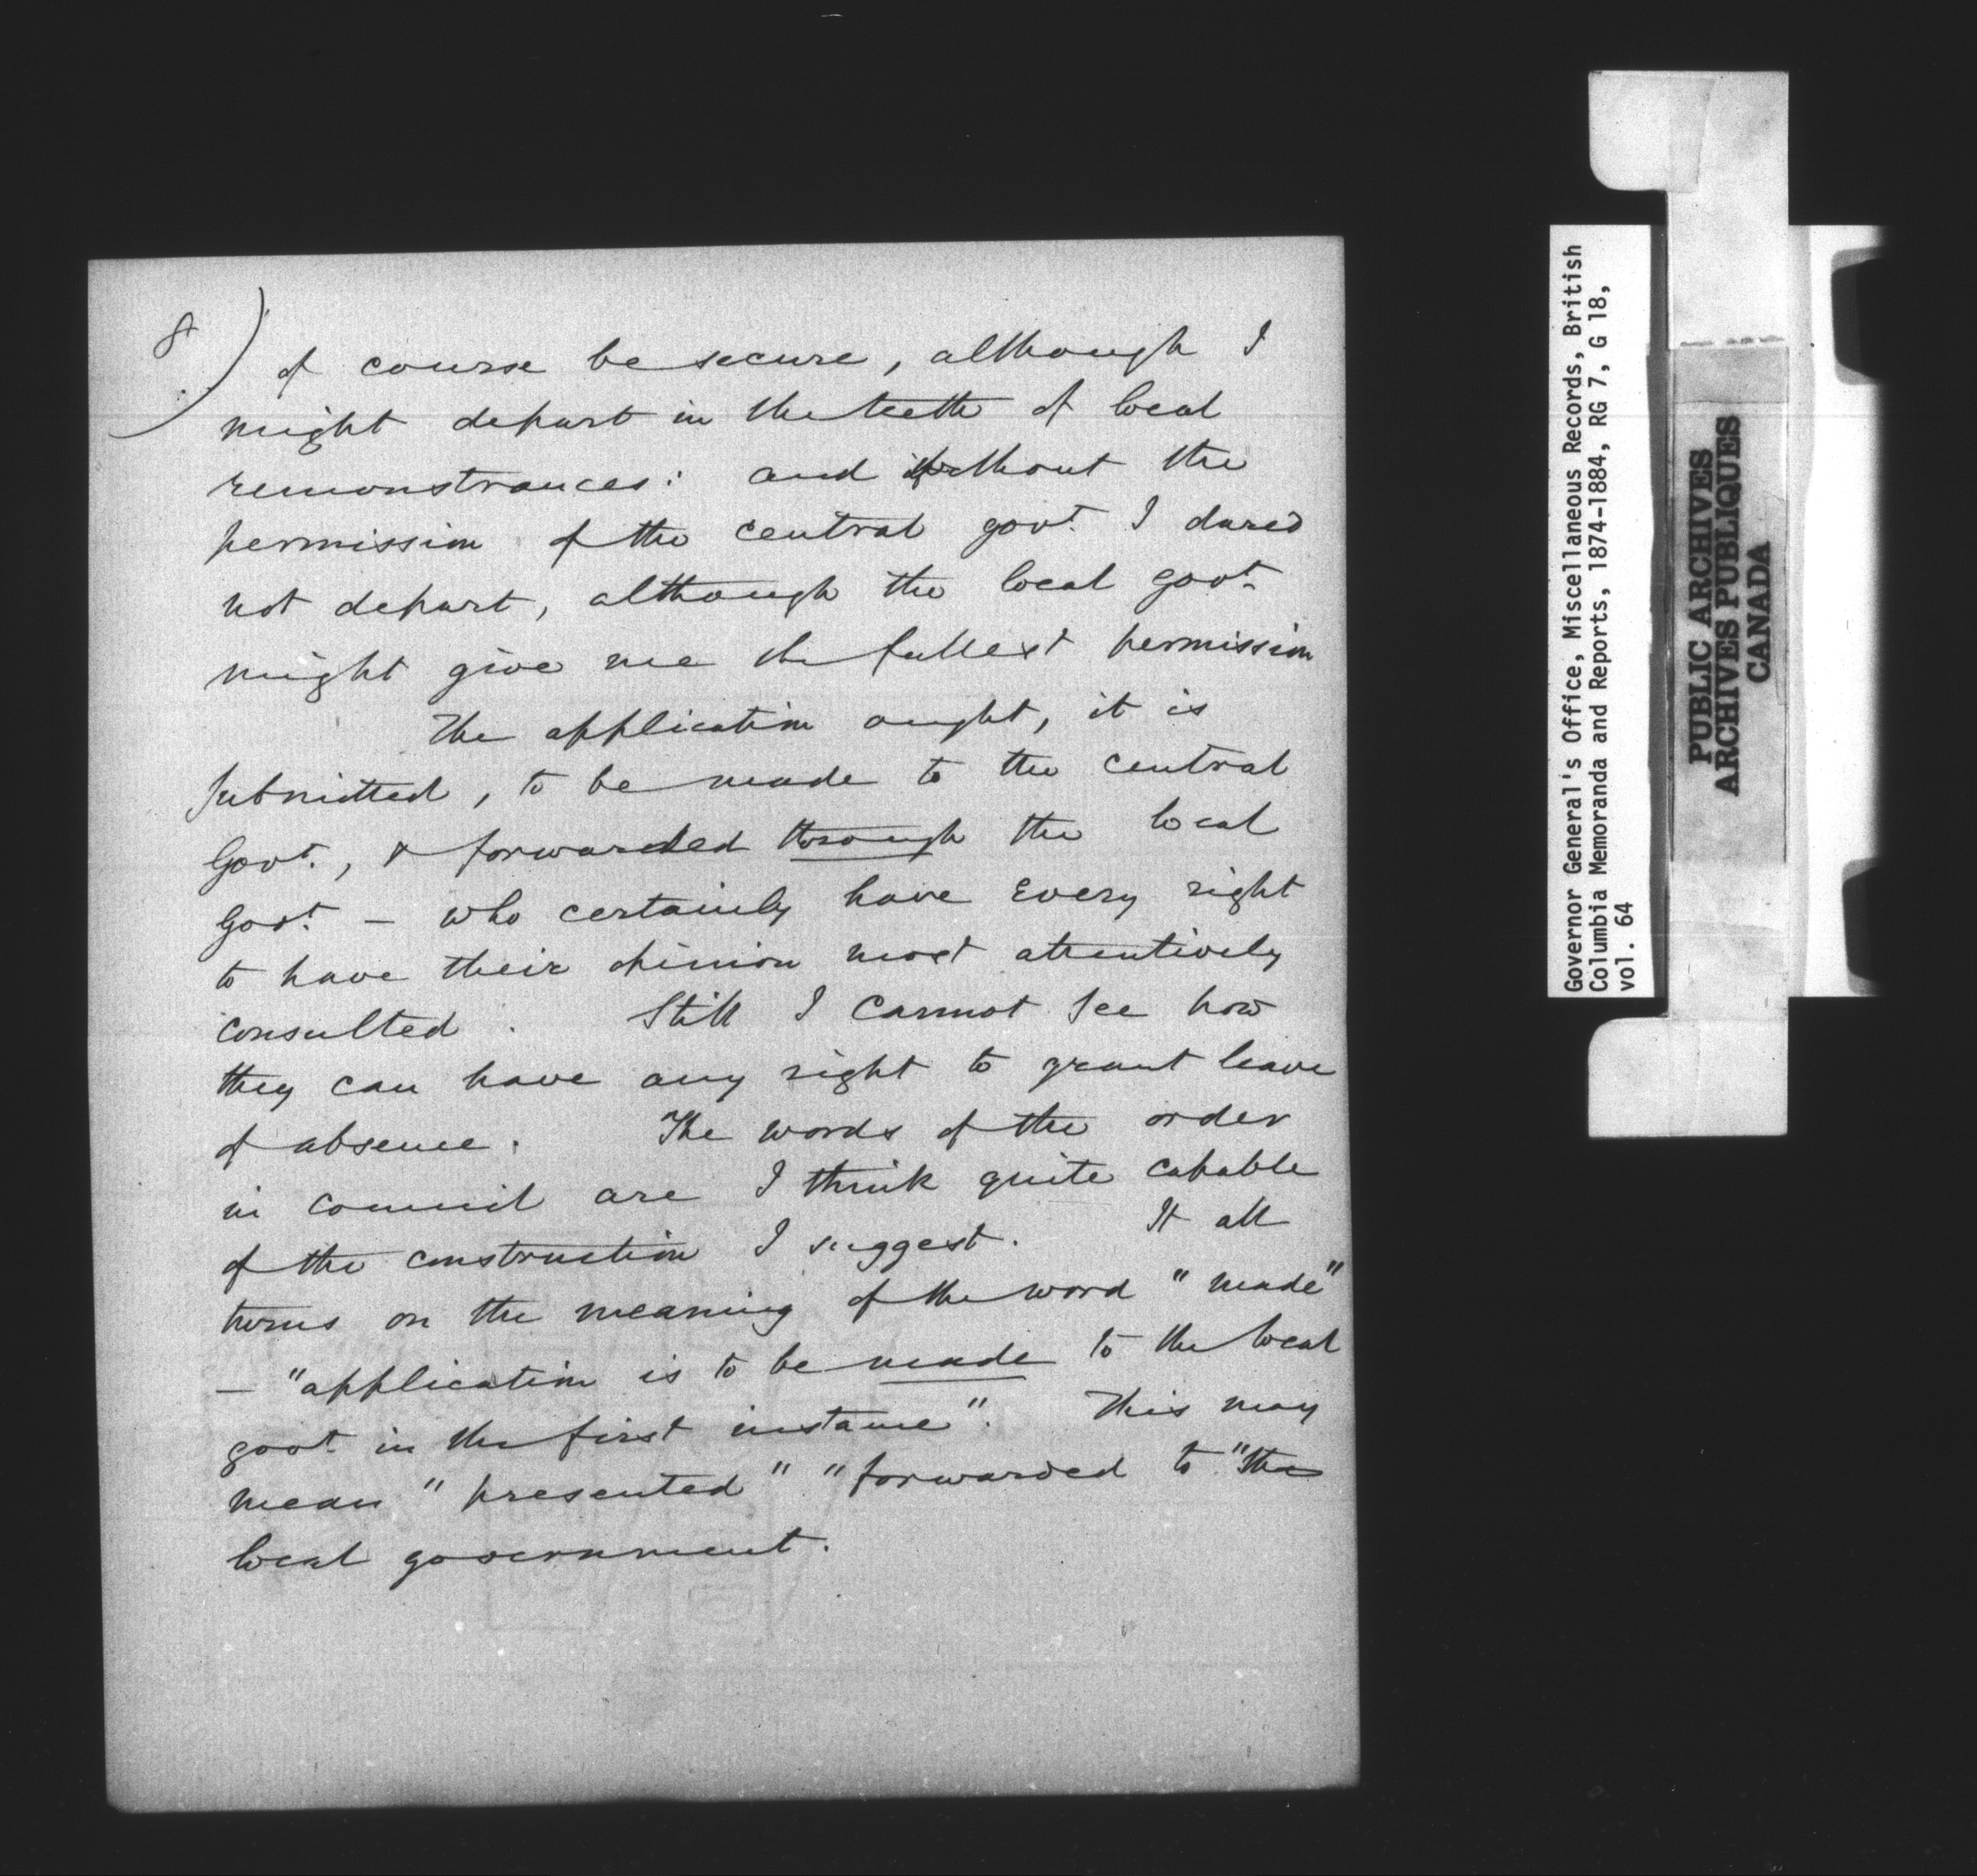 8)
of course be secure, although I
might depart in the teeth of local
remonstrances: and without the
permission of the central govt. I dared
not depart, although the local govt.
might give me the fullest permission
The application ought, it is
submitted, to be made to the central
Govt., & forwarded through the local
Govt. — who certainly have every right
to have their opinion most attentively
consulted. Still I cannot see how
they can have any right to grant leave
of absence. The words of the order
in council are I think quite capable
of the construction I suggest. It all
turns on the meaning of the word "made"
— "application is to be made to the local
govt. in the first instance". This may
mean "presented" "forwarded to" the
local government.
Governor General's Office, Miscellaneous Records, British
Columbia Memoranda and Reports, 1874-1884, RG 7, G 18,
vol. 64
PUBLIC ARCHIVES
ARCHIVES PUBLIQUES
CANADA